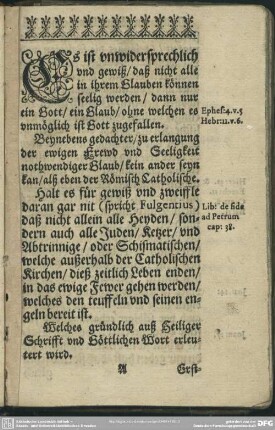 Es ist vnwidersprechlich
vnd gewiß/ daß nicht alle
in ihrem Glauben können
seelig werden/ dann nur
ein Gott/ ein Glaub/ ohne welchen es
vnmöglich ist Gott zugefallen.
Ephes: 4. v. 5
Hebr: 11. v. 6.
Beynebens gedachter/ zu erlangung
der ewigen Frewd vnd Seeligkeit
nothwendiger Glaub/ kein ander seyn
kan/ alß eben der Römisch Catholische.
Halt es für gewiß vnd zweiffle
daran gar nit (spricht Fulgentius)
daß nicht allein alle Heyden/ son-
dern auch alle Juden/ Ketzer/ vnd
Abtrinnige/ oder Schismatischen/
welche außerhalb der Catholischen
Kirchen/ dieß zeitlich Leben enden/
in das ewige Fewer gehen werden/
welches den teuffeln vnd seinen en-
geln bereit ist.
Lib: de fide
ad Petrum
cap: 38.
Welches gründlich auß Heiliger
Schrifft vnd Göttlichen Wort erleu-
tert wird.
A Erst-